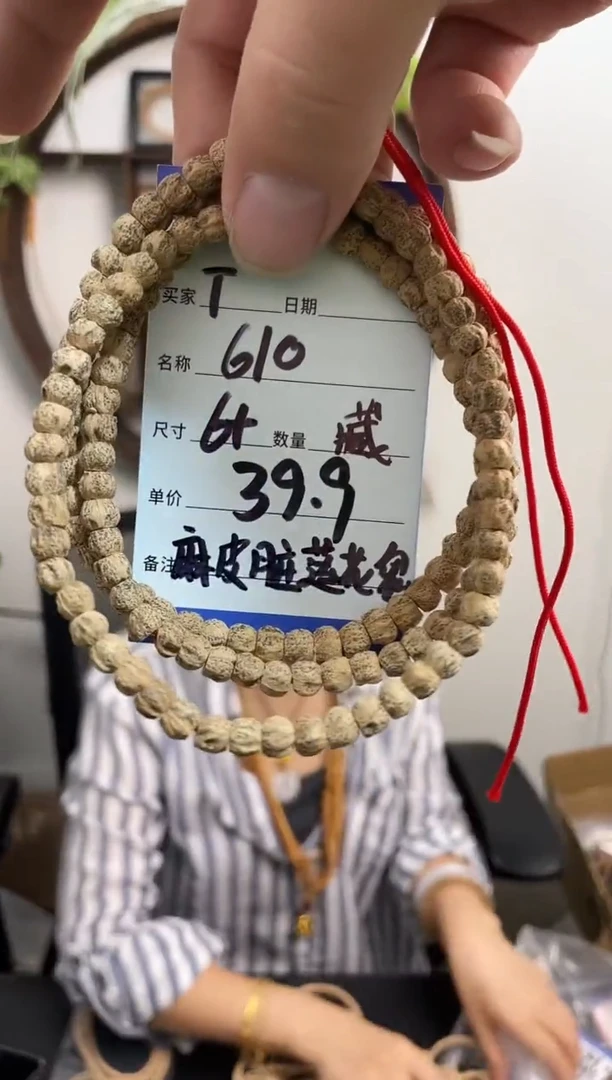 买家 T 日期
名称 610
尺寸 数量 藏
单价 39.9
备注 麻皮脏莲花